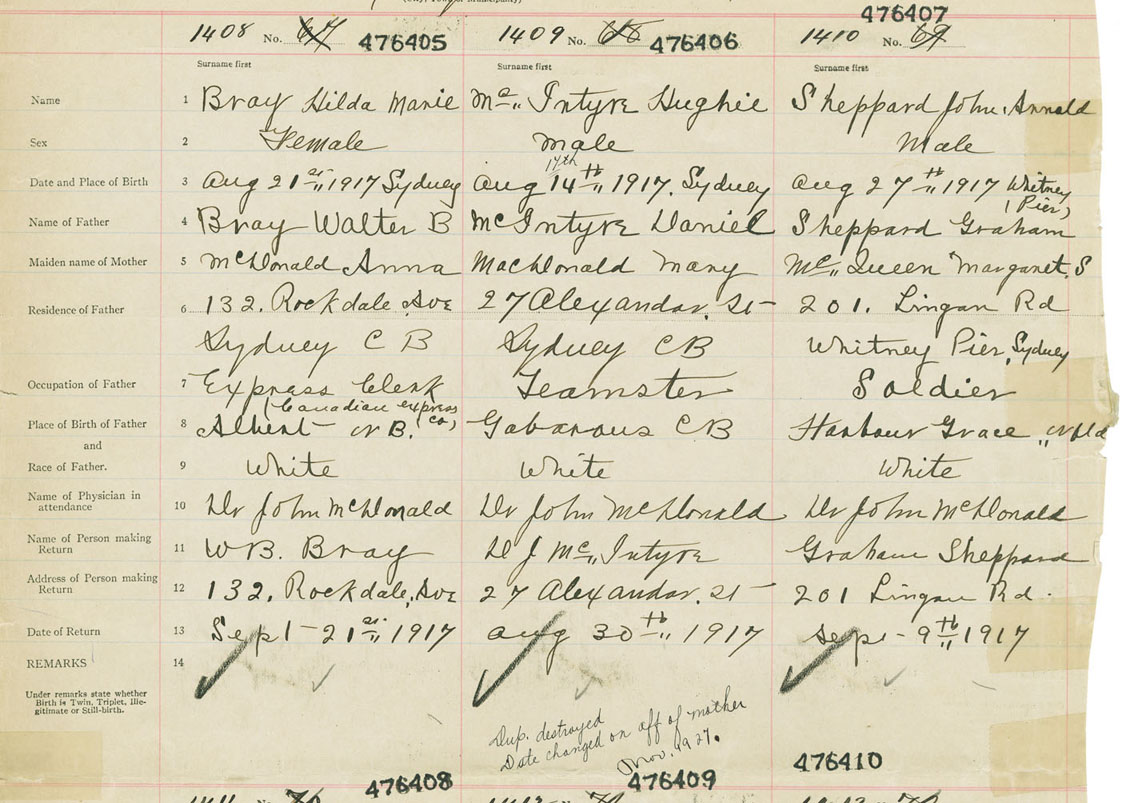 476407
1408 No. 67 476405 1409 No. 68 476406 1410 No. 69
Surname first Surname first Surname first
Name 1 Bray Hilda Marie Mc„ Intyre Hughie Sheppard John. Arnold
Sex 2 Female Male Male
17th
Date and Place of Birth 3 Aug 21st„ 1917 Sydney Aug 14th„ 1917. Sydney Aug 27th„ 1917 Whitney
(Pier)
Name of Father 4 Bray Walter B McIntyre Daniel Sheppard Graham
Maiden name of Mother 5 McDonald Anna MacDonald Mary Mc„ Queen Margaret. S
Residence of Father 6 132. Rockdale. Ave 27 Alexandar. St 201. Lingan Rd
Sydney C B Sydney CB Whitney Pier, Sydney
Occupation of Father 7 Express Clerk Teamster Soldier
(Canadian express
Co)
Place of Birth of Father 8 Albert N B. Gabarous CB Harbour Grace „ Nfld
and
Race of Father. 9 White White White
Name of Physician in
attendance 10 Dr John McDonald Dr John McDonald Dr John McDonald
Name of Person making
Return 11 W B. Bray D J Mc„ Intyre Graham Sheppard
Address of Person making
Return 12 132. Rockdale. Ave 27 Alexandar. St 201 Lingan Rd.
Date of Return 13 Sept-21st„ 1917 Aug 30th„ 1917 Sept-9th„ 1917
REMARKS 14
Under remarks state whether
Birth is Twin, Triplet, Ille-
gitimate or Still-birth.
Dup. destroyed
Date changed on aff of mother
Nov. 1927.
476408 476409 476410